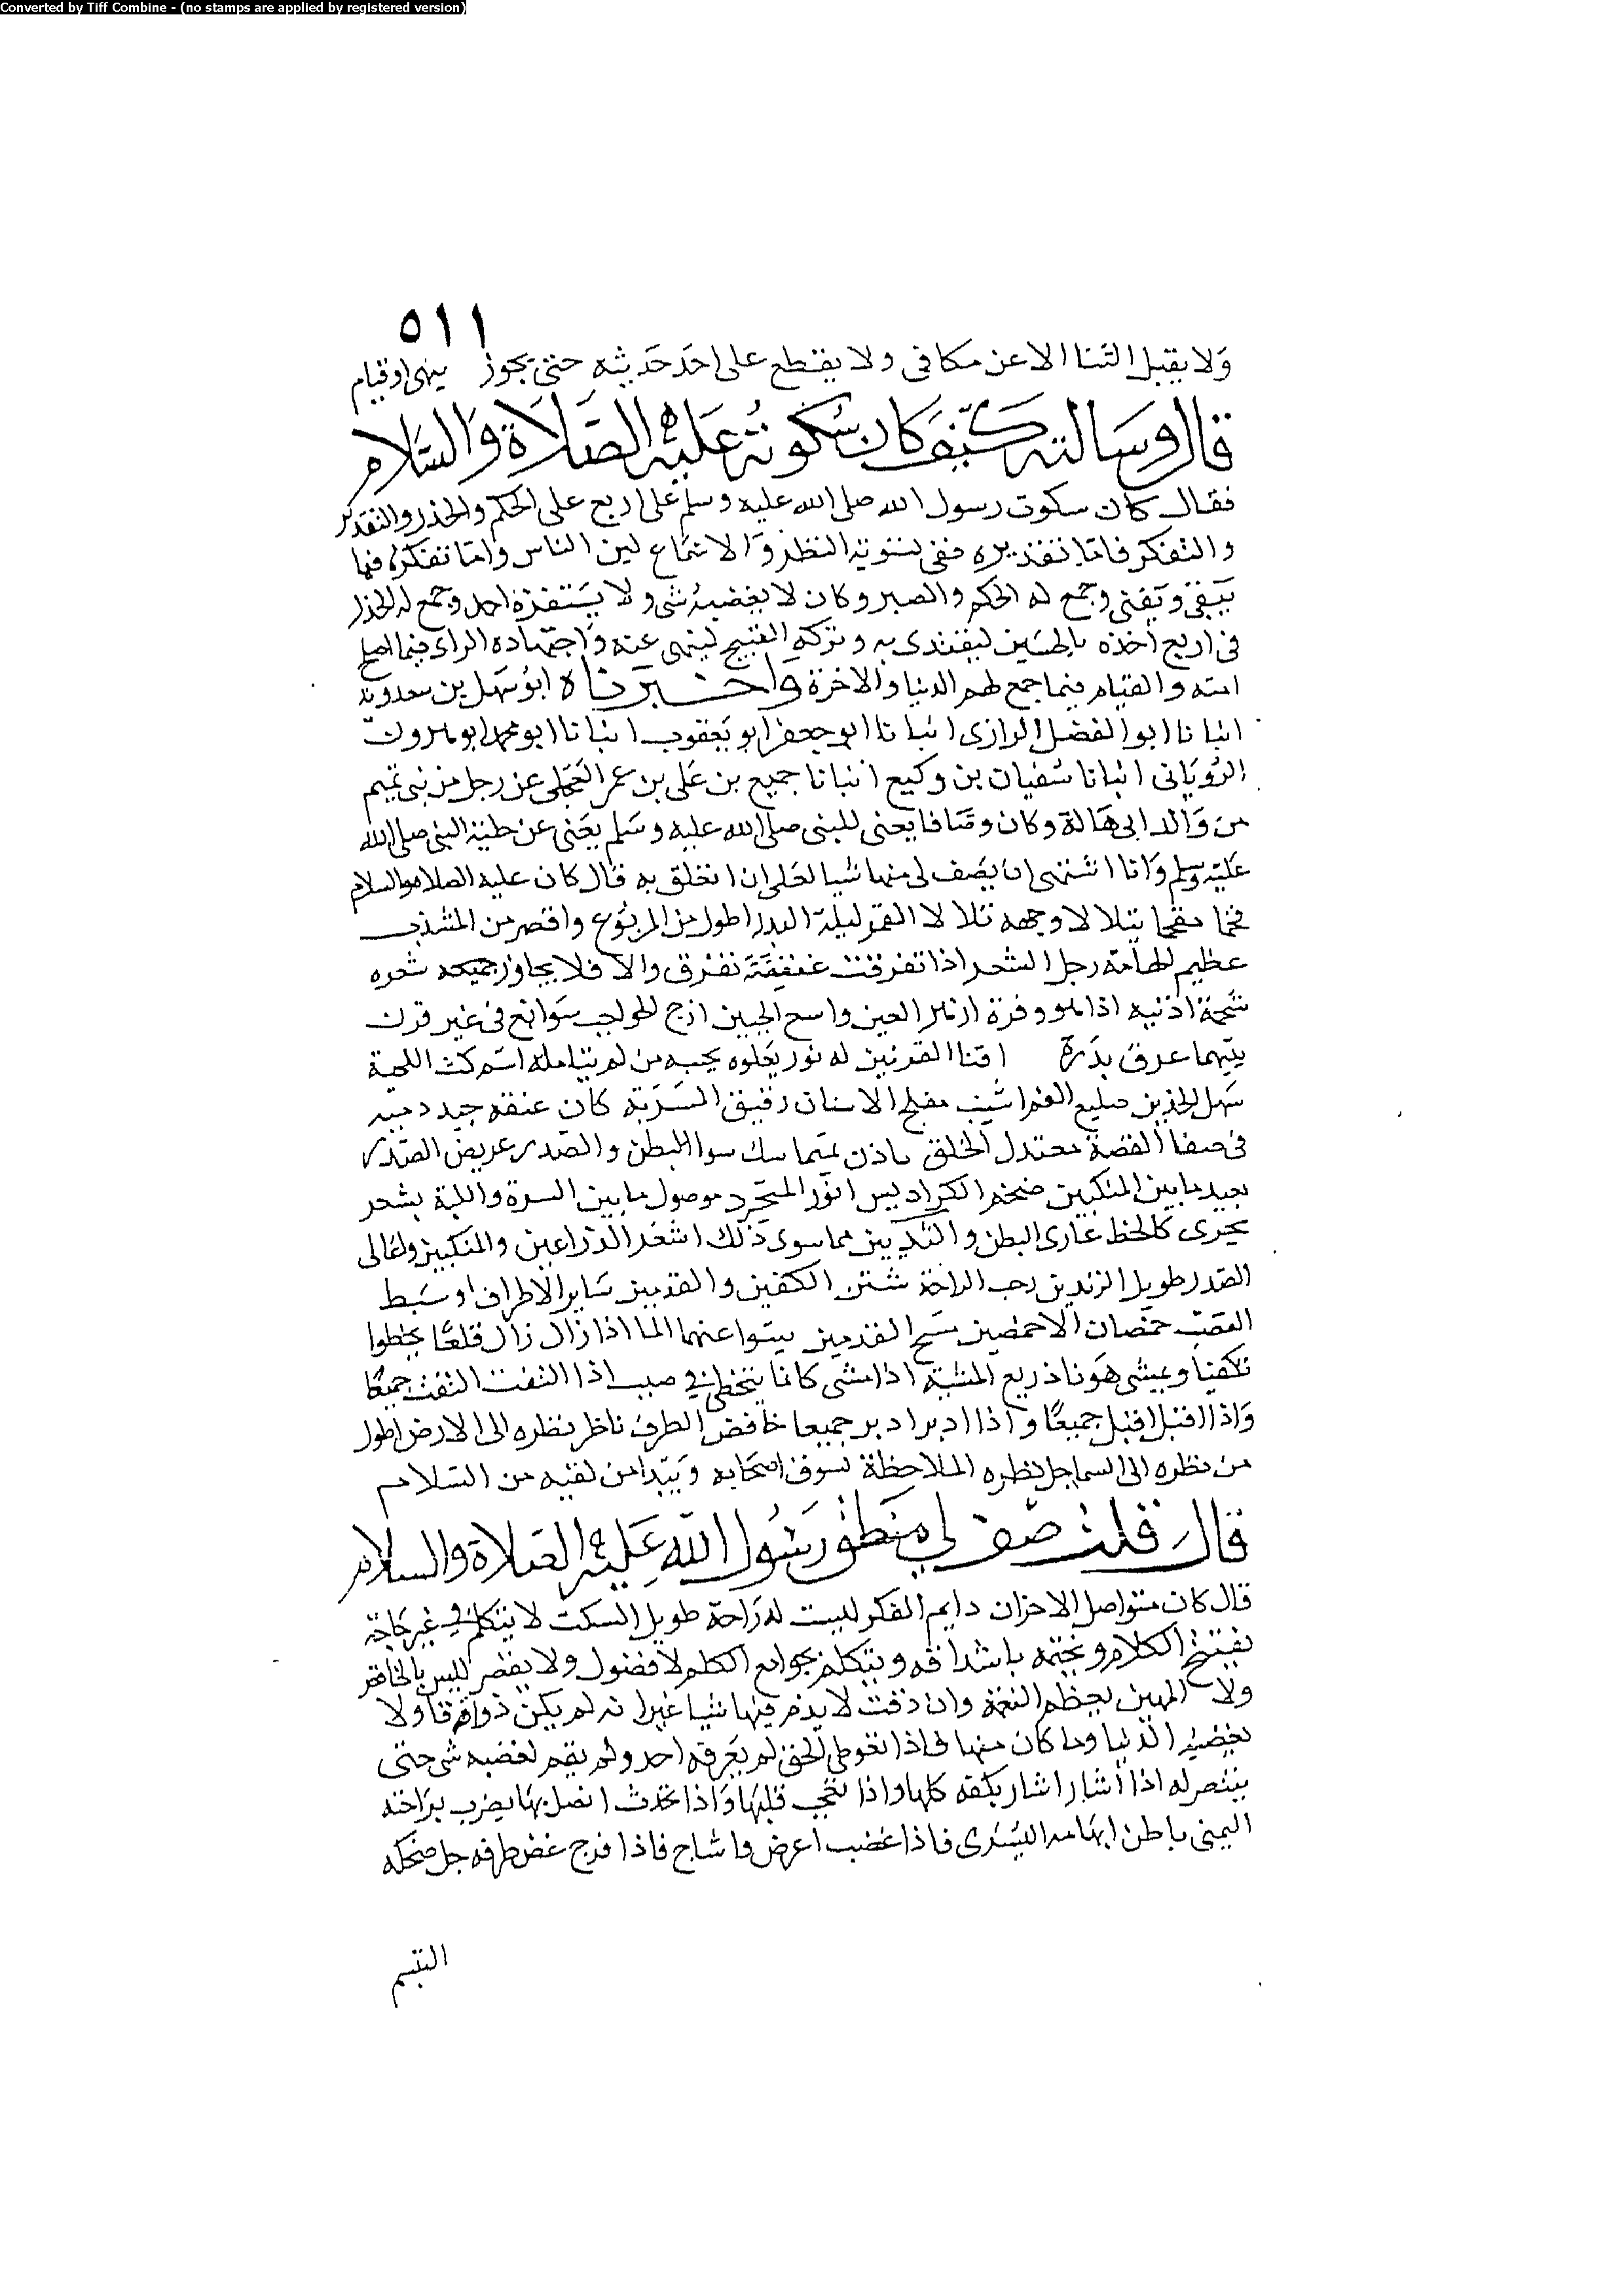 Converted by Tiff Combine - (no stamps are applied by registered version)
٥١١
وَلا يقبل الثنا الا عن مكافى ولا يقطع على احَد حَديثه حتى يجوز ينهى او قيام
قال وسالته كيف كان سُكوته عَليْه الصَّلاَة وَالسَّلام
فقال كان سكوت رسول الله صلى الله عليه وسلم على اربع على الحكم والحذر والتقدير
والتفكر فاما تقديره ففى تسوية النظر وَالاستماع لبين الناس وامّا تفكره فيما
يَبقى وَيَفنى وجمع له الحكم والصبر وكان لا يغضبه شى ولا يَستفزه احد وجمع له الحذر
فى اربع اخذه بالحسَن ليقتدى به وتركه القبيح لينهى عنه وَاجتهاده الراى فيما اصلح
امته والقيام فيما جمع لهم الدنيا والاخرة وَاخبَرنَاه ابوُ سَهل بن سعدويه
انبانا ابو الفضل الرازى انبانا ابو جعفر ابو يَعقوب انبانا ابو محمد ابو هارون
الرُويَانى انبانا سُفيان بن وكيع انبانا جميع بن عَلى بن عمر العجلى عن رجل من بنى تميم
من وَالد ابى هَالة وكان وصّافا يعنى للنبى صلى الله عليه وسَلم يَعنى عن حلية النبى صلى الله
عَليْه وسلم وَانا اشتهى ان يَصف لى منها شيا لعَلى ان اتخلق به قال كان عليه الصلاة والسلام
فخما مفخما يتلالا وجهه تلالا القمر ليلة البدر اطول من المربوُع واقصر من المشذب
عظيم الهامَة رجل الشعر اذا تفرقت عَقيقَته تفرق والا فلا يجاوز جميعه شعره
شحمة اذنيه اذا هو وفرة ازهر العين واسع الجبين ازج الحواجب سَوابغ فى غير قرن
بينهما عرق يدَره اقنا القرنين له نور يَعلوه يحسبه من لم يتامله اشم كث اللحية
سَهل الخدين ضليع الفم اشنب مفلج الاسنان رقيق المسَرَبة كان عنقه جيد دمية
فى صفا الفضة معتدل الخلق بادن متماسك سوا البطن والصّدر عريض الصّدر
بعيد ما بين المنكبين ضخم الكراديس انوَر المتجَرد موصول ما بين السرة واللبة بشعر
يجرى كالخط عَارى البطن والثديين مما سوى ذلك اشعَر الذراعين والمنكبين واعَالى
الصّدر طويل الزندين رحب الراحَة شثن الكفين والقدمين سَاير الاطراف او سَبط
القصَب خمصان الاخمصين مسَيح القدمين ينبوا عنهما الما اذا زال زال قلعًا يخطوا
تكفيا ويمشى هَونا ذريع المشيَة اذا مشى كانما يتخطى فى صبب اذا التفت التفت جميعًا
وَاذا اقبل اقبل جميعًا واذا ادبر ادبر جميعا خافض الطرف ناظر نظره الى الارض اطول
من نظره الى السما جل نظره الملاحظة يسوق اصحَابه وَيَبدا من لقيه من السّلام
قال قلت صف لي منطق رسُول الله عَليْه الصَلاة والسلام
قال كان متواصل الاحزان دايم الفكر ليست له رَاحة طويل السكت لا يتكلم فى غير حَاجَة
يفتتح الكلام ويختمه باشداقه ويتكلم بجوامع الكلم لا فضول ولا يقصر ليس بالجافى
ولا المهين يعظم النعمة وان دقت لا يذم منها شيا غير انه لم يكن ذواقا ولا
تغضبه الدُنيا وما كان منها فاذا تعوطى الحق لم يَعرفه احد ولم يقم لغضبه شى حتى
ينتصر له اذا أشار اشار بكفه كلها واذا تعجب قلبَها وَاذا تحدث اتصل بهَا يضرب برَاحته
اليمنى باطن ابهامه اليُسرى فاذا غضب اعرض واشاح فاذا فرح غض طرفه جل ضحكه
التبسم